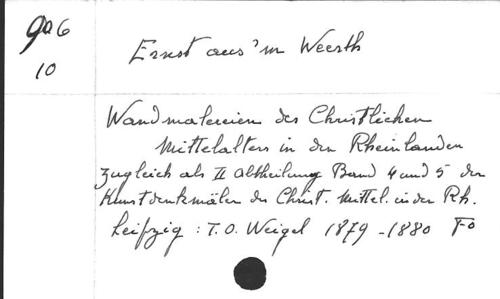 9a6
10
Ernst aus'm Weerth
Wandmalereien des Christlichen
Mittelalters in den Rheinlanden
Zugleich als II Abtheilung Band 4 und 5 der
Kunstdenkmäler des Christ. Mittel. in der Rh.
Leipzig : T.O. Weigel 1879-1880 Fo